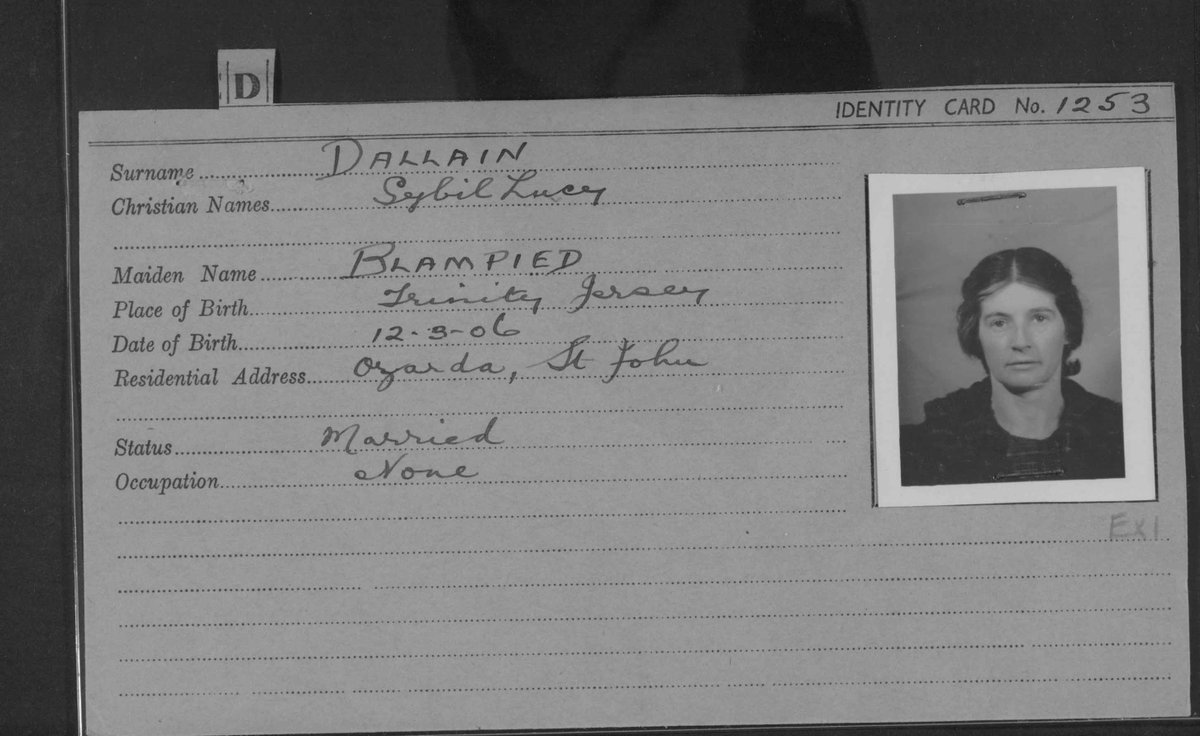 D
IDENTITY CARD No. 1253
Surname DALLAIN
Christian Names Sybil Lucy
Maiden Name BLAMPIED
Place of Birth Trinity Jersey
Date of Birth 12-3-06
Residential Address Ozarda, St John
Status Married
Occupation None
Ex1